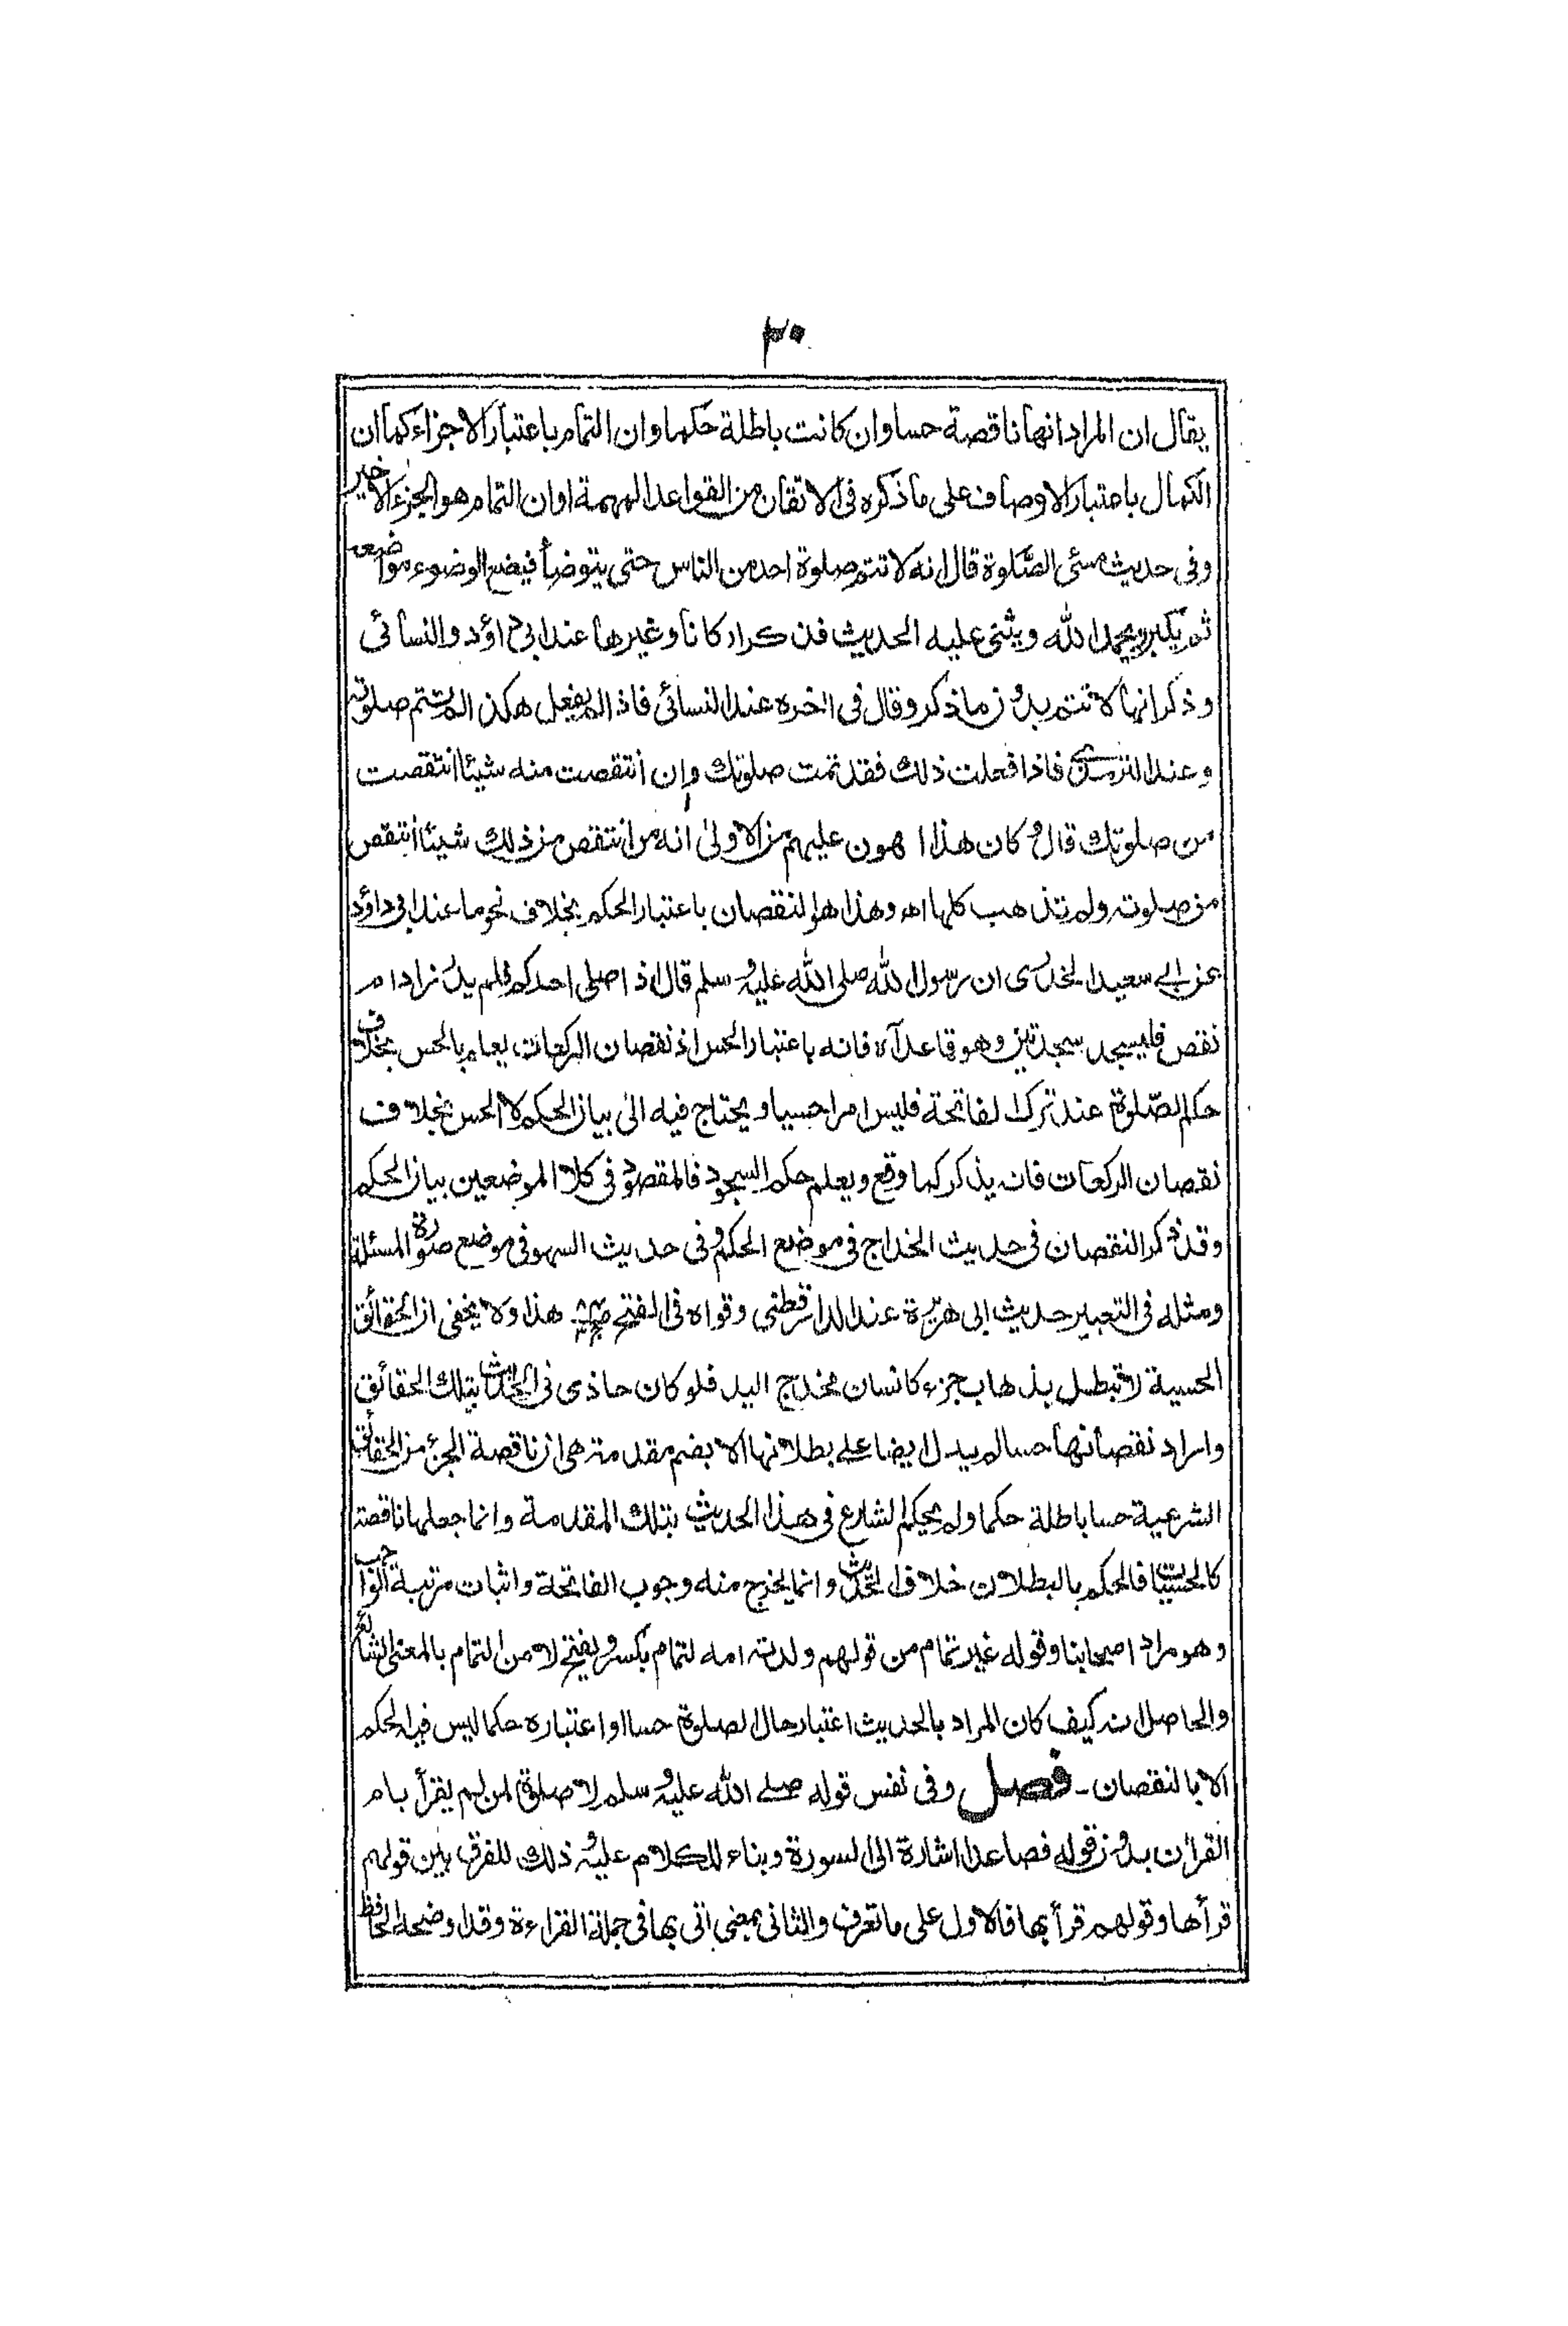 ٣٠
يقال ان المراد انها ناقصة حسا وان كانت باطلة حكما وان التمام باعتبار الاجزاء كما ان
الكمال باعتبار الاوصاف على ما ذكره فى الاتقان من القواعد المهمة او ان التمام هو الجزء الاخير
وفى حديث مسئى الصّلوة قال انه لا تتم صلوة احد من الناس حتى يتوضأ فيضع الوضوء مواضعه
ثم يكبر ويحمد الله ويثنى عليه الحديث فذكر اركانا وغيرها عند ابى داؤد والنسائى
وذكر انها لا تتم بدون ما ذكر وقال فى اخره عند النسائى فاذا لم يفعل هكذا لم تتم صلوته
وعند الترمذى فاذا فعلت ذلك فقد تمت صلوتك وان انتقصت منه شيئا انتقصت
من صلوتك قال وكان هذا اهون عليهم من الاولىٰ انه من انتقص من ذلك شيئا انتقص
من صلوته ولم تذهب كلها اه وهذا هو النقصان باعتبار الحكم بخلاف نحو ما عند ابى داؤد
عن ابى سعيد الخدرى ان رسول الله صلى الله عليه وسلم قال اذا صلى احدكم فلم يدر زاد ام
نقص فليسجد سجدتين وهو قاعد آه فانه باعتبار الحس اذ نقصان الركعات يعلم بالحس بخلاف
حكم الصّلوة عند ترك الفاتحة فليس امرا حسيا ويحتاج فيه الى بيان الحكم لا الحس بخلاف
نقصان الركعات فانه يذكر كما وقع ويعلم حكم السجود فالمقصود فى كلا الموضعين بيان الحكم
وقد ذكر النقصان فى حديث الخداج فى موضع الحكم وفى حديث السهو فى موضع صورة المسئلة
ومثله فى التعبير حديث ابى هريرة عند الدارقطنى وقواه فى الفتح هذا ولا يخفى ان الحقائق
الحسية لا تبطل بذهاب جزء كانسان مخدج اليد فلو كان حاذى فى الحديث بتلك الحقائق
واراد نقصانها حسا لم يدل ايضا على بطلانها الا بضم مقدمة هى ان ناقصة الجزء من الحقائق
الشرعية حسا باطلة حكما ولم يحكم الشارع فى هذا الحديث بتلك المقدمة وانما جعلها ناقصة
كالحسيات فالحكم بالبطلان خلاف الحديث وانما يخرج منه وجوب الفاتحة واثبات مرتبة الواجب
وهو مراد اصحابنا وقوله غير تمام من قولهم ولدته امه لتمام بكسر وبفتح لا من التمام بالمعنى الشائع
والحاصل انه كيف كان المراد بالحديث اعتبار حال الصلوة حسا او اعتباره حكما ليس فيه الحكم
الا بالنقصان - فصل وفى نفس قوله صلى الله عليه وسلم لا صلوة لمن لم يقرأ بام
القرآن بدون قوله فصاعدا اشارة الى السورة وبناء للكلام عليه وذلك للفرق بين قولهم
قرأها وقولهم قرأ بها فالاول على ما تعرف والثانى بمعنى اتى بها فى جملة القراءة وقد اوضحه الحافظ